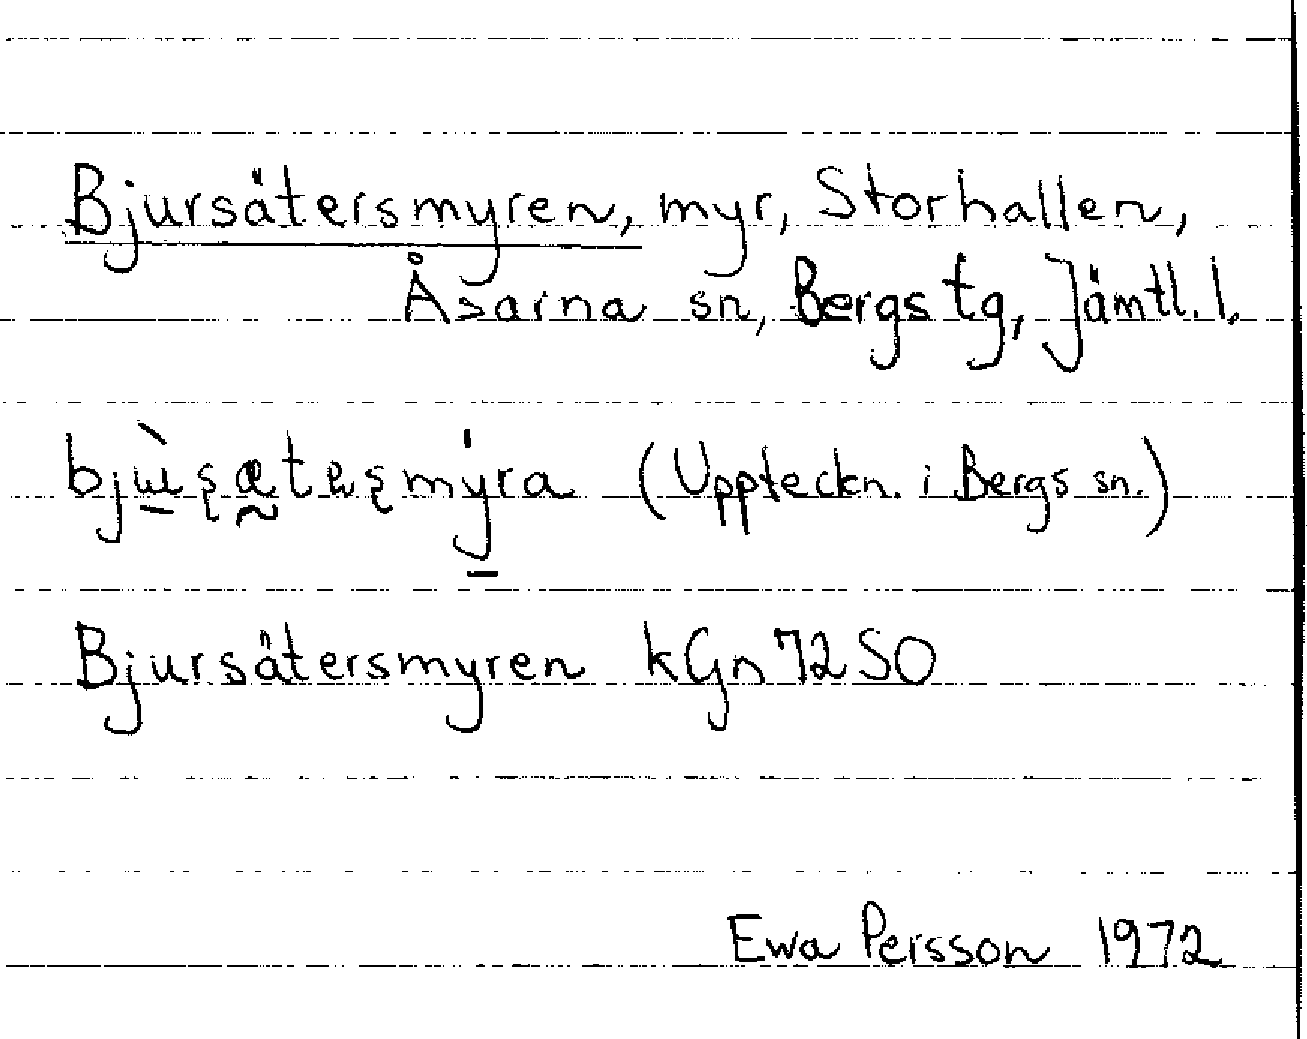 Bjursätersmyren, myr, Storhallen,
Åsarna sn, Bergs tg, Jämtl. l.
(Uppteckn. i Bergs sn.)
Bjursätersmyren kGn 72 SO
Ewa Persson 1972